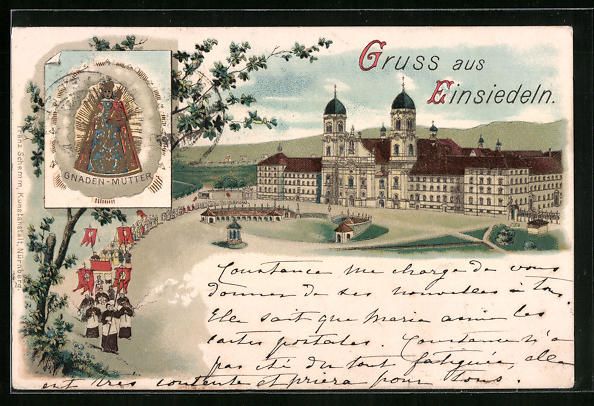 Gruss aus
Einsiedeln.
GNADEN-MUTTER
Franz Schemm, Kunstanstalt, Nürnberg.
Constance me charge de vous
donner de ses nouvelles à tous.
Elle sait que Maria aime les
cartes postales. Constance n'a
pas été du tout fatiguée, elle
est très contente et priera pour tous.